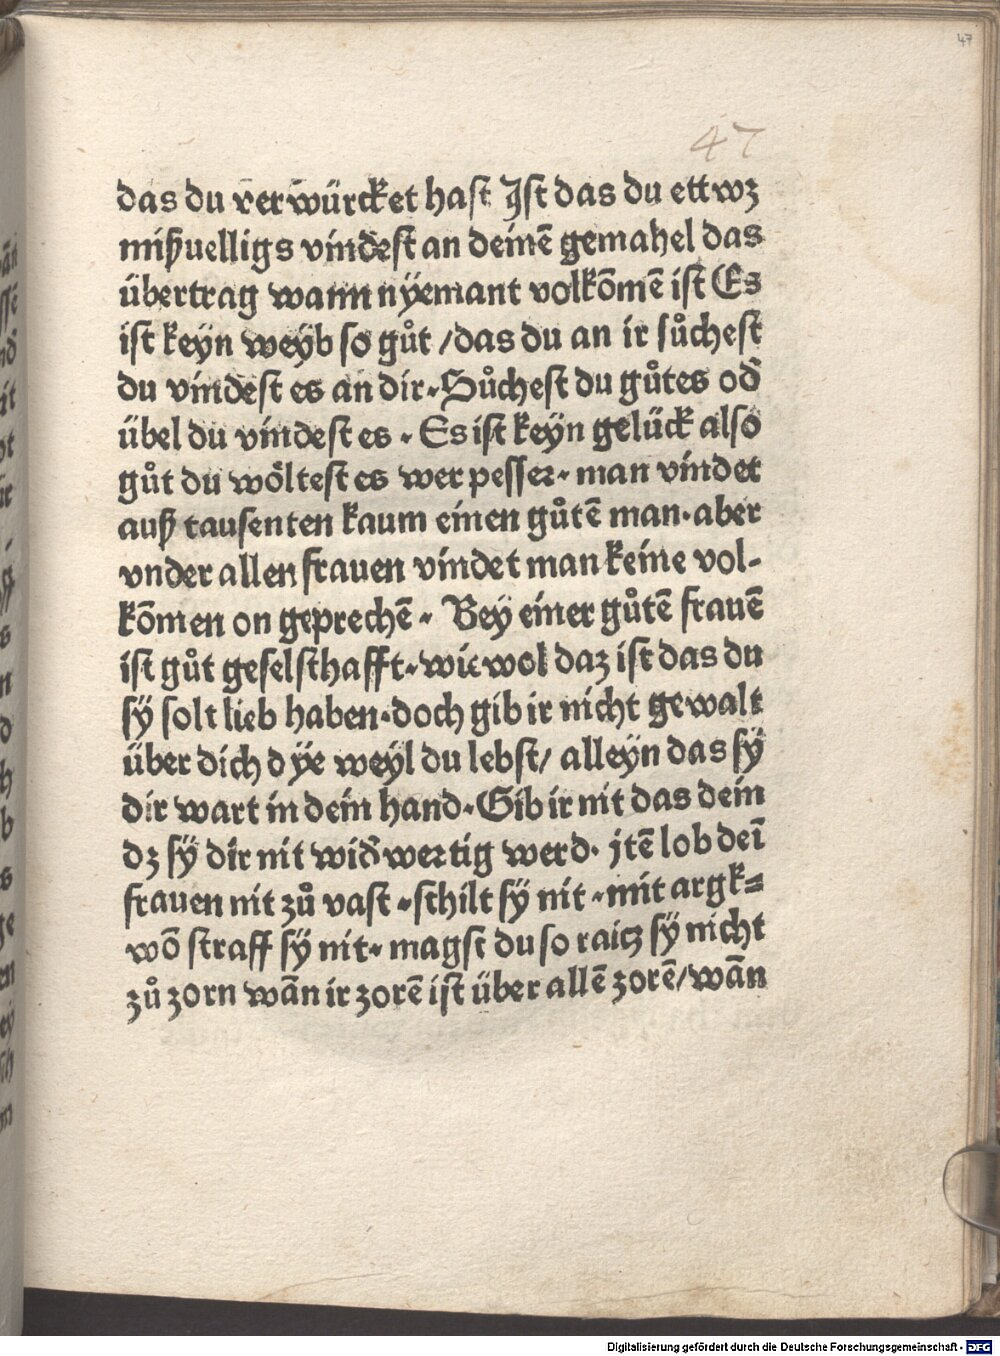 47
47
das du verwürcket hast Jst das du ettwz
mißuelligs vindest an deinē gemahel das
übertrag wann nÿemant volkōmē ist Es
ist keÿn weÿb so gůt /das du an ir sůchest
du vindest es an dir. Sůchest du gůtes od̄
übel du vindest es. Es ist keÿn gelück also
gůt du wöltest es wer pesser. man vindet
auß tausenten kaum einen gůtē man. aber
vnder allen frauen vindet man keine vol-
kōmen on geprechē. Beÿ einer gůtē frauē
ist gůt geselsthafft. wie wol daz ist das du
sÿ solt lieb haben. doch gib ir nicht gewalt
über dich dÿe weÿl du lebst/ alleÿn das sÿ
dir wart in dein hand. Gib ir nit das dein
dz sÿ dir nit wid̄wertig werd. jtē lob deī
frauen nit zů vast. schilt sÿ nit. mit argk=
wō straff sÿ nit. magst du so raitz sÿ nicht
zů zorn wān ir zorē ist über allē zorē/wān
Digitalisierung gefördert durch die Deutsche Forschungsgemeinschaft - DFG